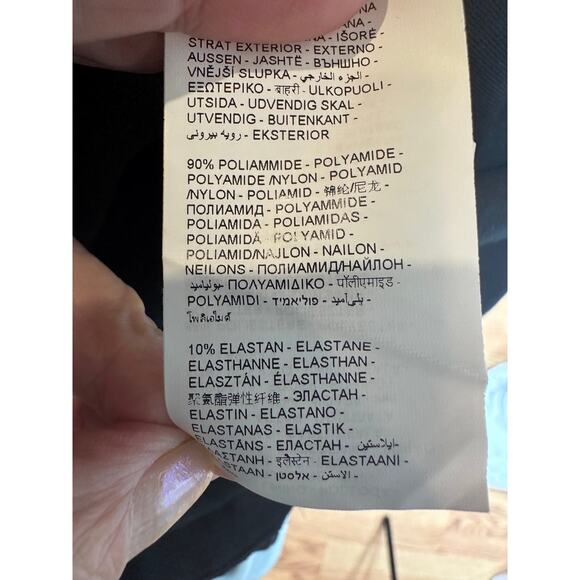 IŠORĖ -
STRAT EXTERIOR - EXTERNO -
AUSSEN - JASHTË - ВЪНШНО -
VNĚJŠÍ SLUPKA - الجزء الخارجي -
ΕΞΩΤΕΡΙΚΟ - बाहरी - ULKOPUOLI -
UTSIDA - UDVENDIG SKAL -
UTVENDIG - BUITENKANT -
رویه بیرونی - EKSTERIOR
90% POLIAMMIDE - POLYAMIDE -
POLYAMIDE /NYLON - POLYAMID
/NYLON - POLIAMID - 锦纶/尼龙 -
ПОЛИАМИД - POLYAMMIDE -
POLIAMIDA - POLIAMIDAS -
POLIAMIDĂ - POLYAMID -
POLIAMID/NAJLON - NAILON -
NEILONS - ПОЛИАМИД/НАЙЛОН -
بولياميد - ΠΟΛΥΑΜΙΔΙΚΟ - पॉलीएमाइड -
POLYAMIDI - פוליאמיד - پلی‌آمید -
โพลิเอไมด์
10% ELASTAN - ELASTANE -
ELASTHANNE - ELASTHAN -
ELASZTÁN - ÉLASTHANNE -
聚氨酯弹性纤维 - ЭЛАСТАН -
ELASTIN - ELASTANO -
ELASTANAS - ELASTIK -
ELASTĀNS - ЕЛАСТАН - ایلاستین -
इलैस्टेन - ELASTAANI -
אלסטן - الاستن -